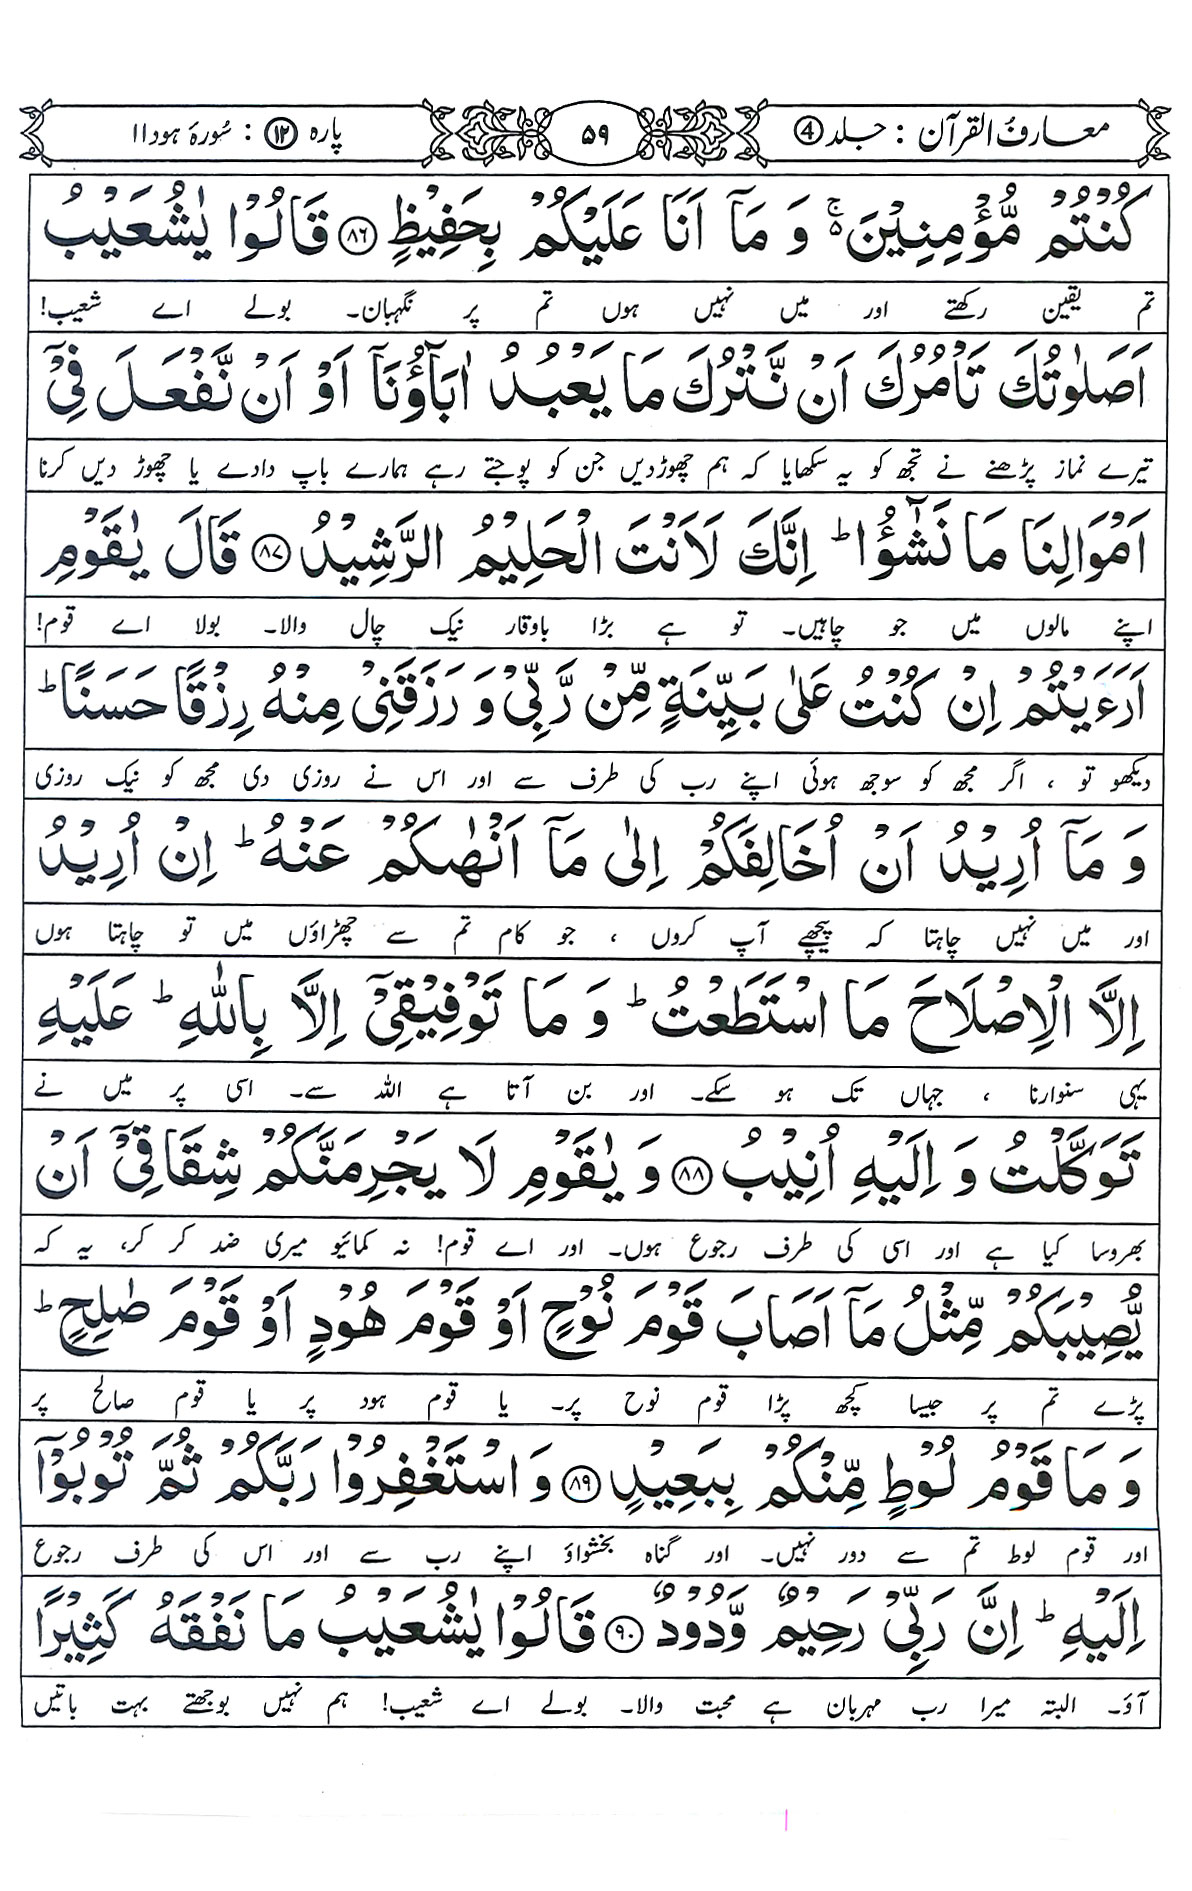 معارفُ القرآن : جلد ۴
۵۹
پارہ ۱۲ : سُورۂ ہود ۱۱
كُنْتُمْ مُّؤْمِنِيْنَ ۚ۬ وَ مَاۤ اَنَا عَلَيْكُمْ بِحَفِيْظٍ ۝۸۶ قَالُوْا يٰشُعَيْبُ
تم یقین رکھتے اور میں نہیں ہوں تم پر نگہبان۔ بولے اے شعیب!
اَصَلٰوتُكَ تَاْمُرُكَ اَنْ نَّتْرُكَ مَا يَعْبُدُ اٰبَآؤُنَاۤ اَوْ اَنْ نَّفْعَلَ فِيْۤ
تیرے نماز پڑھنے نے تجھ کو یہ سکھایا کہ ہم چھوڑدیں جن کو پوجتے رہے ہمارے باپ دادے یا چھوڑ دیں کرنا
اَمْوَالِنَا مَا نَشٰٓؤُا ؕ اِنَّكَ لَاَنْتَ الْحَلِيْمُ الرَّشِيْدُ ۝۸۷ قَالَ يٰقَوْمِ
اپنے مالوں میں جو چاہیں۔ تو ہے بڑا باوقار نیک چال والا۔ بولا اے قوم!
اَرَءَيْتُمْ اِنْ كُنْتُ عَلٰى بَيِّنَةٍ مِّنْ رَّبِّيْ وَ رَزَقَنِيْ مِنْهُ رِزْقًا حَسَنًا ؕ
دیکھو تو ، اگر مجھ کو سوجھ ہوئی اپنے رب کی طرف سے اور اس نے روزی دی مجھ کو نیک روزی
وَ مَاۤ اُرِيْدُ اَنْ اُخَالِفَكُمْ اِلٰى مَاۤ اَنْهٰىكُمْ عَنْهُ ؕ اِنْ اُرِيْدُ
اور میں نہیں چاہتا کہ پیچھے آپ کروں ، جو کام تم سے چھڑاؤں میں تو چاہتا ہوں
اِلَّا الْاِصْلَاحَ مَا اسْتَطَعْتُ ؕ وَ مَا تَوْفِيْقِيْۤ اِلَّا بِاللّٰهِ ؕ عَلَيْهِ
یہی سنوارنا ، جہاں تک ہو سکے۔ اور بن آتا ہے اللہ سے۔ اسی پر میں نے
تَوَكَّلْتُ وَ اِلَيْهِ اُنِيْبُ ۝۸۸ وَ يٰقَوْمِ لَا يَجْرِمَنَّكُمْ شِقَاقِيْۤ اَنْ
بھروسا کیا ہے اور اسی کی طرف رجوع ہوں۔ اور اے قوم! نہ کمائیو میری ضد کر کر، یہ کہ
يُّصِيْبَكُمْ مِّثْلُ مَاۤ اَصَابَ قَوْمَ نُوْحٍ اَوْ قَوْمَ هُوْدٍ اَوْ قَوْمَ صٰلِحٍ ؕ
پڑے تم پر جیسا کچھ پڑا قوم نوح پر۔ یا قوم ہود پر یا قوم صالح پر
وَ مَا قَوْمُ لُوْطٍ مِّنْكُمْ بِبَعِيْدٍ ۝۸۹ وَ اسْتَغْفِرُوْا رَبَّكُمْ ثُمَّ تُوْبُوْۤا
اور قوم لوط تم سے دور نہیں۔ اور گناہ بخشواؤ اپنے رب سے اور اس کی طرف رجوع
اِلَيْهِ ؕ اِنَّ رَبِّيْ رَحِيْمٌ وَّدُوْدٌ ۝۹۰ قَالُوْا يٰشُعَيْبُ مَا نَفْقَهُ كَثِيْرًا
آؤ۔ البتہ میرا رب مہربان ہے محبت والا۔ بولے اے شعیب! ہم نہیں بوجھتے بہت باتیں